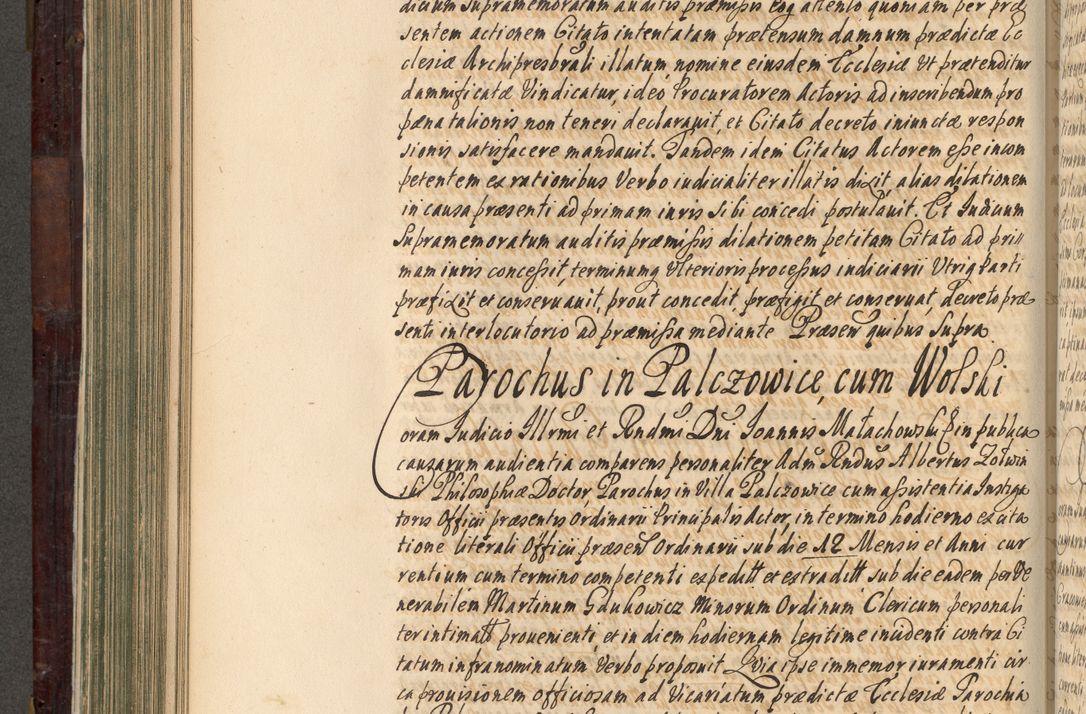 dicium supramemoratum auditis præmissis eoq attento quoniam per præ
sentem actionem Citato intentatam prætensum damnum prædictæ Ec
clesiæ Archipresbrali illatum nomine eiusdem Ecclesiæ Vt prætenditur
damnificatæ Vindicatur, ideo Procuratorem Actoris ad inscribendum pro
pæna talionis non teneri declarauit, et Citato decreto iniunctæ respon
sionis satisfacere mandauit. Tandem idem Citatus Actorem esse incom
petentem ex rationibus Verbo iudicialiter illatis dixit alias dilationem
in causa præsenti ad primam iuris sibi concedi postulauit. Et Iudicium
supramemoratum auditis præmissis dilationem petitam Citato ad pri
mam iuris concessit, terminumq Vlterioris processus iudiciarii Utriq Parti
præfixit et conseruauit, prout concedit, præfigit et conseruat, Decreto præ
senti interlocutorio ad præmissa mediante Præsen quibus supra
Parochus in Palczowice, cum Wolski
Coram Iudicio Illrmi et Rndmi Dni Ioannis Małachowski in publica
causarum audientia comparens personaliter Adm Rndus Albertus Zołwin
ski Philosophiæ Doctor, Parochus in Villa Palczowice cum assistentia Instiga
toris Officii præsentis Ordinarii Principalis Actor, in termino hodierno ex cita
tione literali Officii præsen Ordinarii sub die 12 Mensis et Anni cur
rentium cum termino competenti expeditt et extraditt sub die eadem per Ve
nerabilem Martinum Gdukowicz Minorum Ordinum Clericum personali
ter intimatt proueniento, et in diem hodiernam legitime incidenti contra Ci
tatum infranominatum Verbo proposuit Quia ipse immemor iuramenti cir
ca prouisionem officiosam ad Vicariatum prædictæ Ecclesiæ Parochia